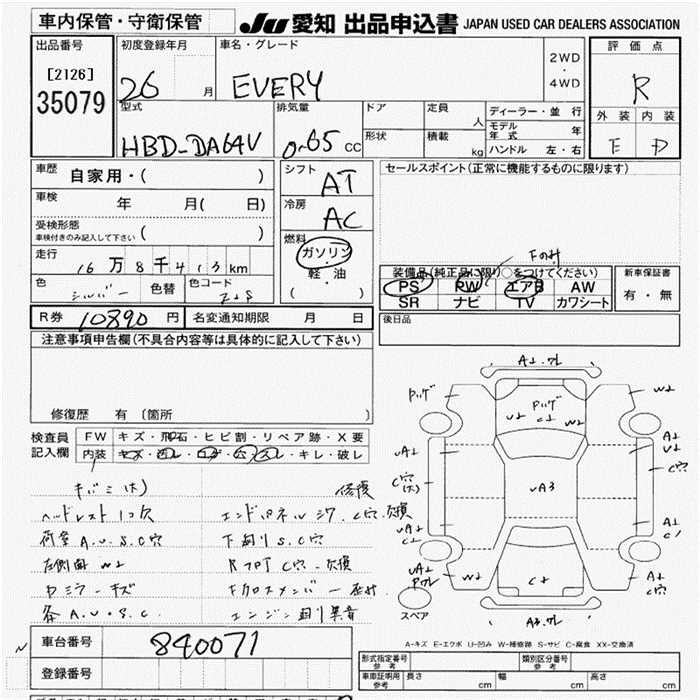 車内保管・守衛保管
JU 愛知 出品申込書 JAPAN USED CAR DEALERS ASSOCIATION
出品番号
[2126]
35079
初度登録年月
26 月
車名・グレード
EVERY
2WD
・
4WD
評価点
R
外装 内装
E D
型式
HBD-DA64V
排気量
0.65 cc
ドア
定員
人
形状
積載
kg
ディーラー・並行
モデル年式 年
ハンドル 左・右
車歴
自家用・( )
車検
年 月( 日)
受検形態
車検付きのみ記入して下さい ( )
走行
16万8千413km
色
シルバー
色替
色コード
Z2S
シフト
AT
冷房
AC
燃料
ガソリン
・
軽・油
( )
セールスポイント(正常に機能するものに限ります)
Fのみ
装備品(純正品に限り○をつけてください)
PS PW エアB AW
SR ナビ TV カワシート
新車保証書
有・無
R券 10890 円
名変通知期限 月 日
後日品
注意事項申告欄(不具合内容等は具体的に記入して下さい)
修復歴 有〔箇所 〕
検査員
記入欄
FW キズ・飛石・ヒビ割・リペア跡・X要
内装 キズ・汚レ・コゲ・穴・スレ・キレ・破レ
キバミ(大) 修復
ヘッドレスト1コ欠
荷室 A.U.S.C穴
下廻りS.C穴
左側面 W2
カミラーキズ
各 A.U.S.C.
エンジン廻り異音
A2.ワレ
U2
C2
W2
W2
UA2
C穴
UA3
A2
U2
C穴
UA2
C2
A2
C1
UA2
Pワレ
W2
C2
A2
C2
A3.ワレ
スペア
A-キズ E-エクボ U-凹み W-補修跡 S-サビ C-腐食 XX-交換済
車台番号
840071
登録番号
形式指定番号
参考
類別区分番号
参考
車庫証明用
参考
長さ cm
幅 cm
高さ cm